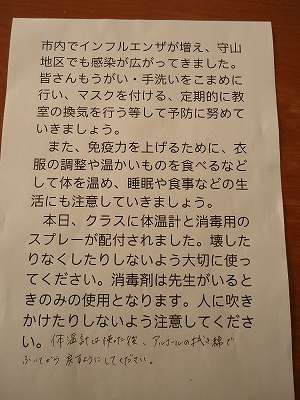 市内でインフルエンザが増え、守山
地区でも感染が広がってきました。
皆さんもうがい・手洗いをこまめに
行い、マスクを付ける、定期的に教
室の換気を行う等して予防に努めて
いきましょう。
また、免疫力を上げるために、衣
服の調整や温かいものを食べるなど
して体を温め、睡眠や食事などの生
活にも注意していきましょう。
本日、クラスに体温計と消毒用の
スプレーが配付されました。壊した
りなくしたりしないよう大切に使っ
てください。消毒剤は先生がいると
きのみの使用となります。人に吹き
かけたりしないよう注意してくださ
い。体温計は使った後、アルコールの拭き綿で
ふいてから戻すようにしてください。